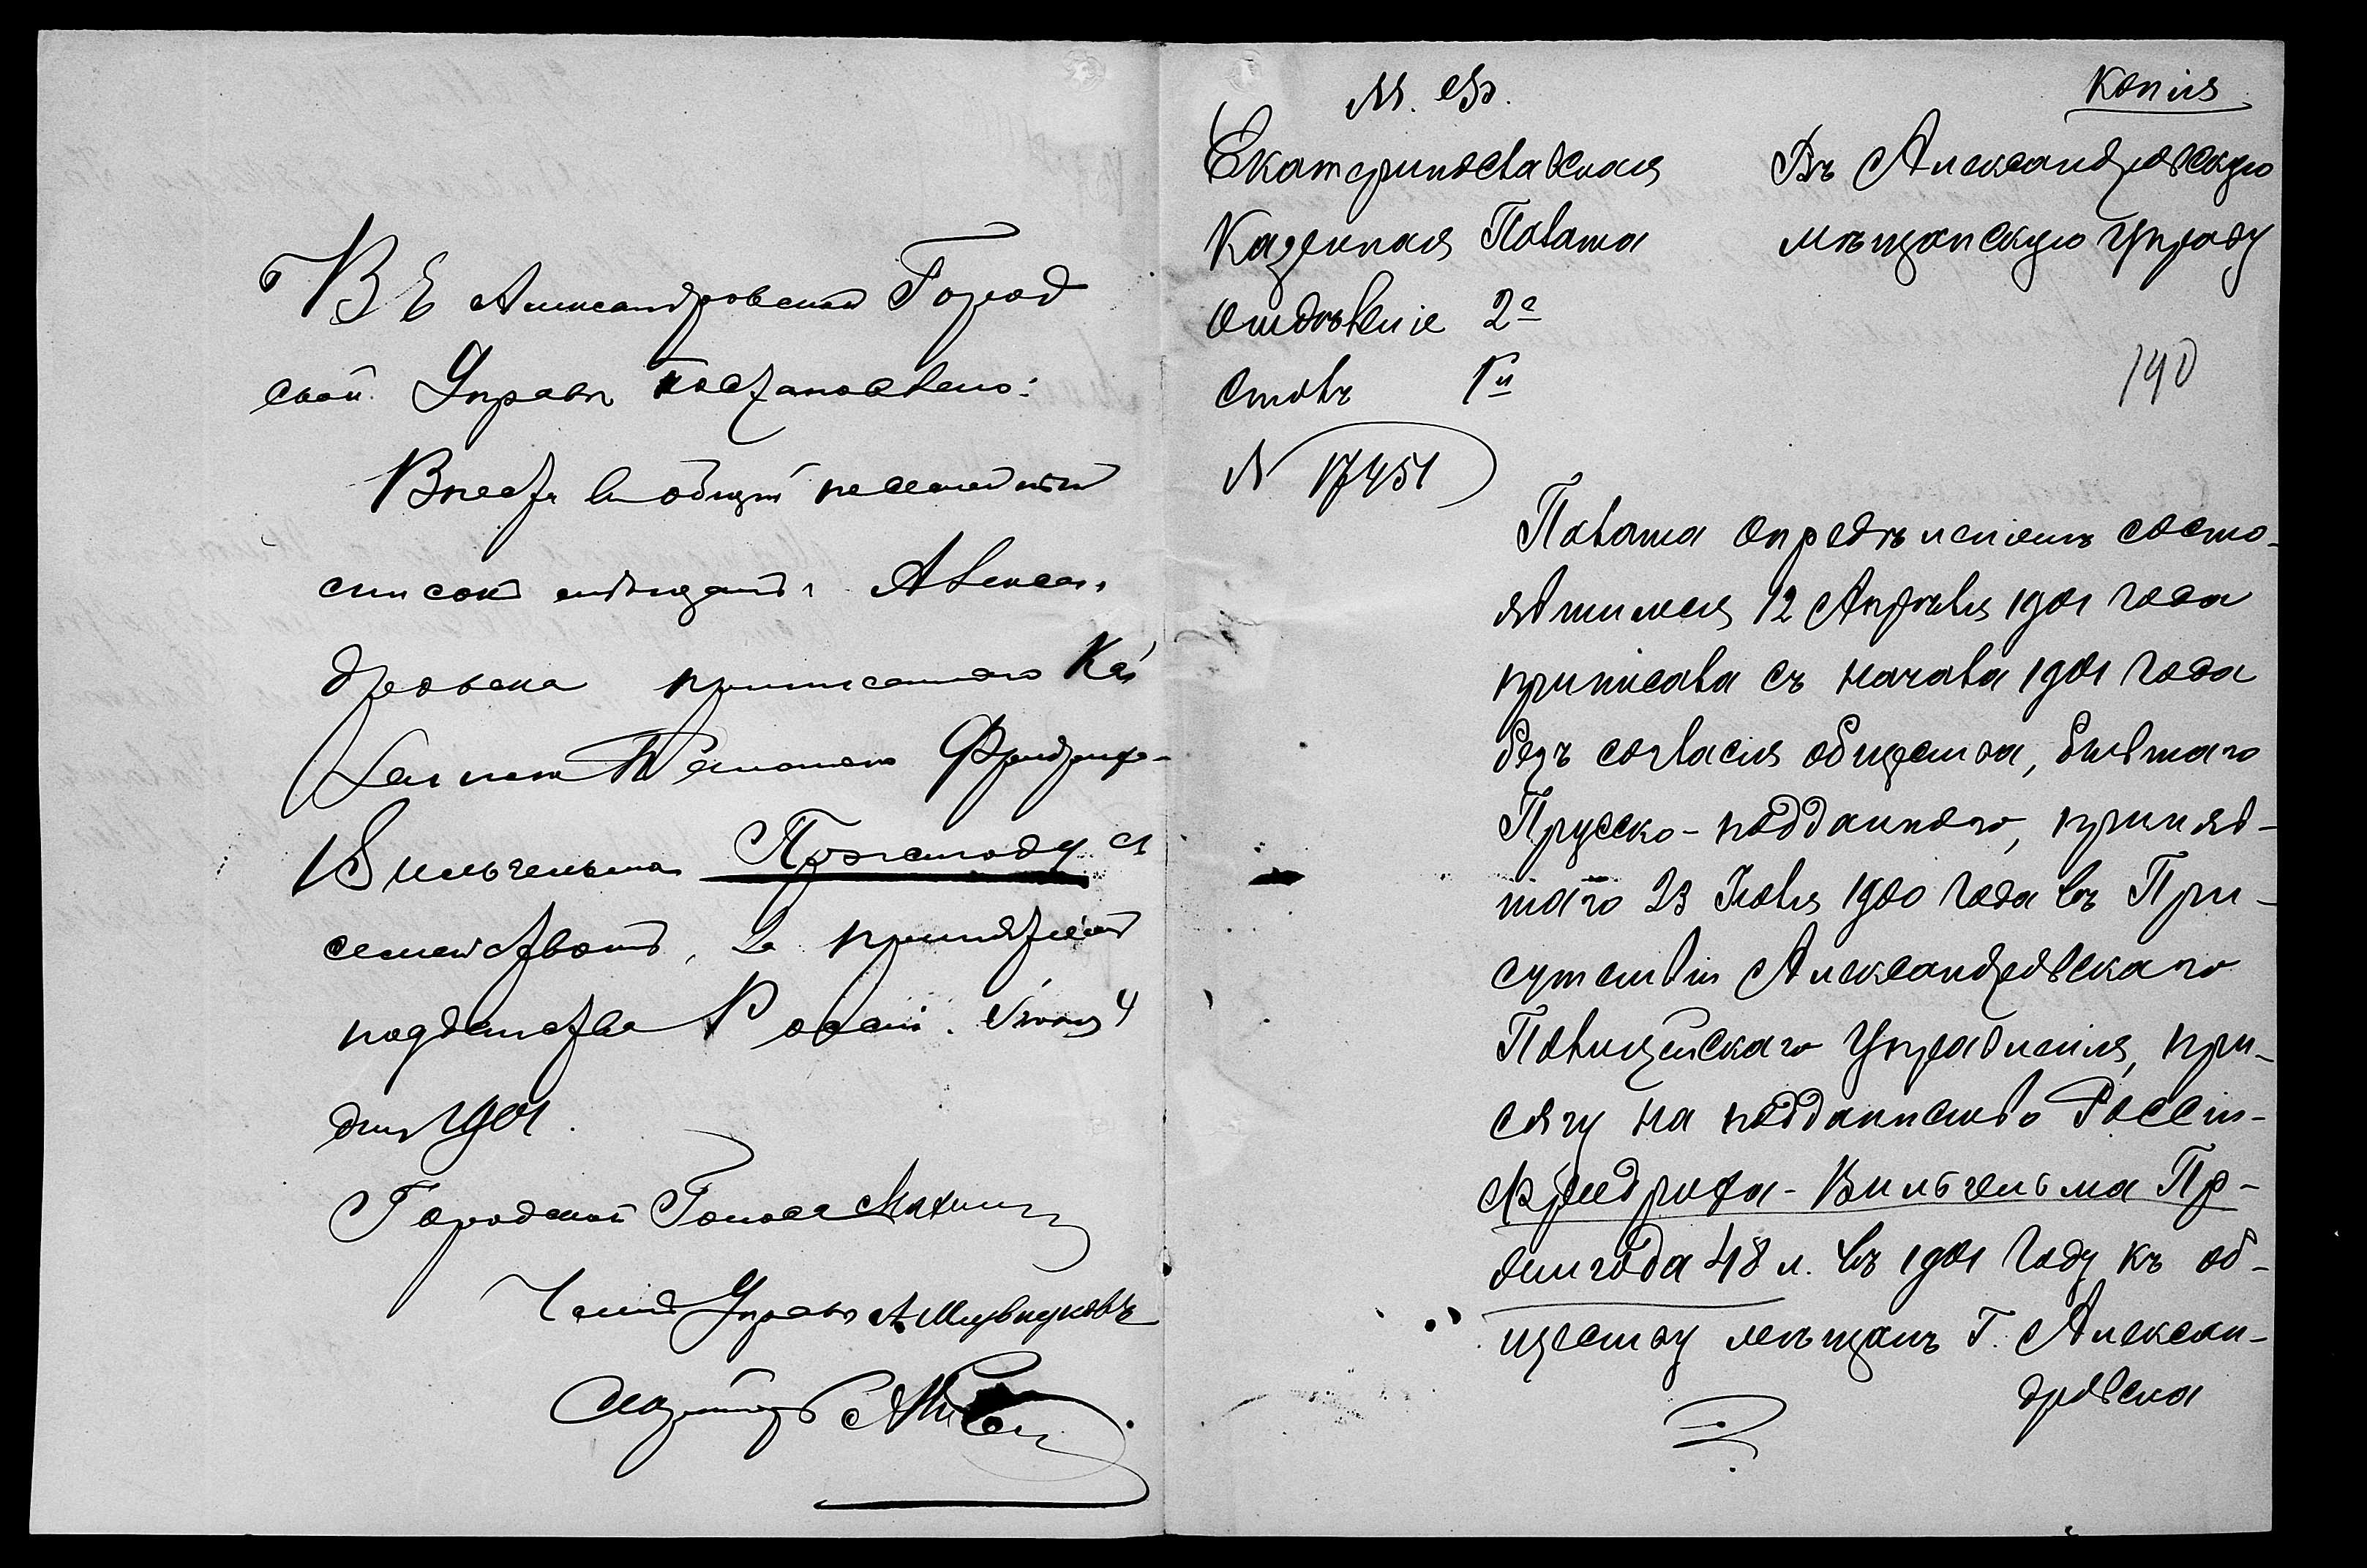 Въ Александровской Город
ской Управѣ постановлено:
Внесть въ общий посемейный
списокъ мѣщанъ г. Алексан
дровска приписаннаго Ка
Палатою Фридриха-
Вильгельма с
семействомъ, по принятіи
подданства Россіи. Іюня 4
дня 1901.
Городской Голова Махинъ
Членъ Управы А.
Секретарь
М. Ф.
Екатеринославская
Казенная Палата
Отдѣленіе 2е
Столъ 1й
N 17451
Копія
Въ Александровскую
мѣщанскую Управу
190
Палата опредѣленіемъ состо-
явшимся 12 Апрѣля 1901 года
приписала съ начала 1901 года
безъ согласія общества, бывшаго
Прусско-подданнаго, приняв-
шаго 23 Іюля 1900 года въ При-
сутствіи Александровскаго
Полицейскаго Управленія, при-
сягу на подданство Россіи-
Фридриха-Вильгельма Пр-
оштода 48 л. въ 1901 году къ об-
ществу мѣщанъ г. Алексан-
дровска